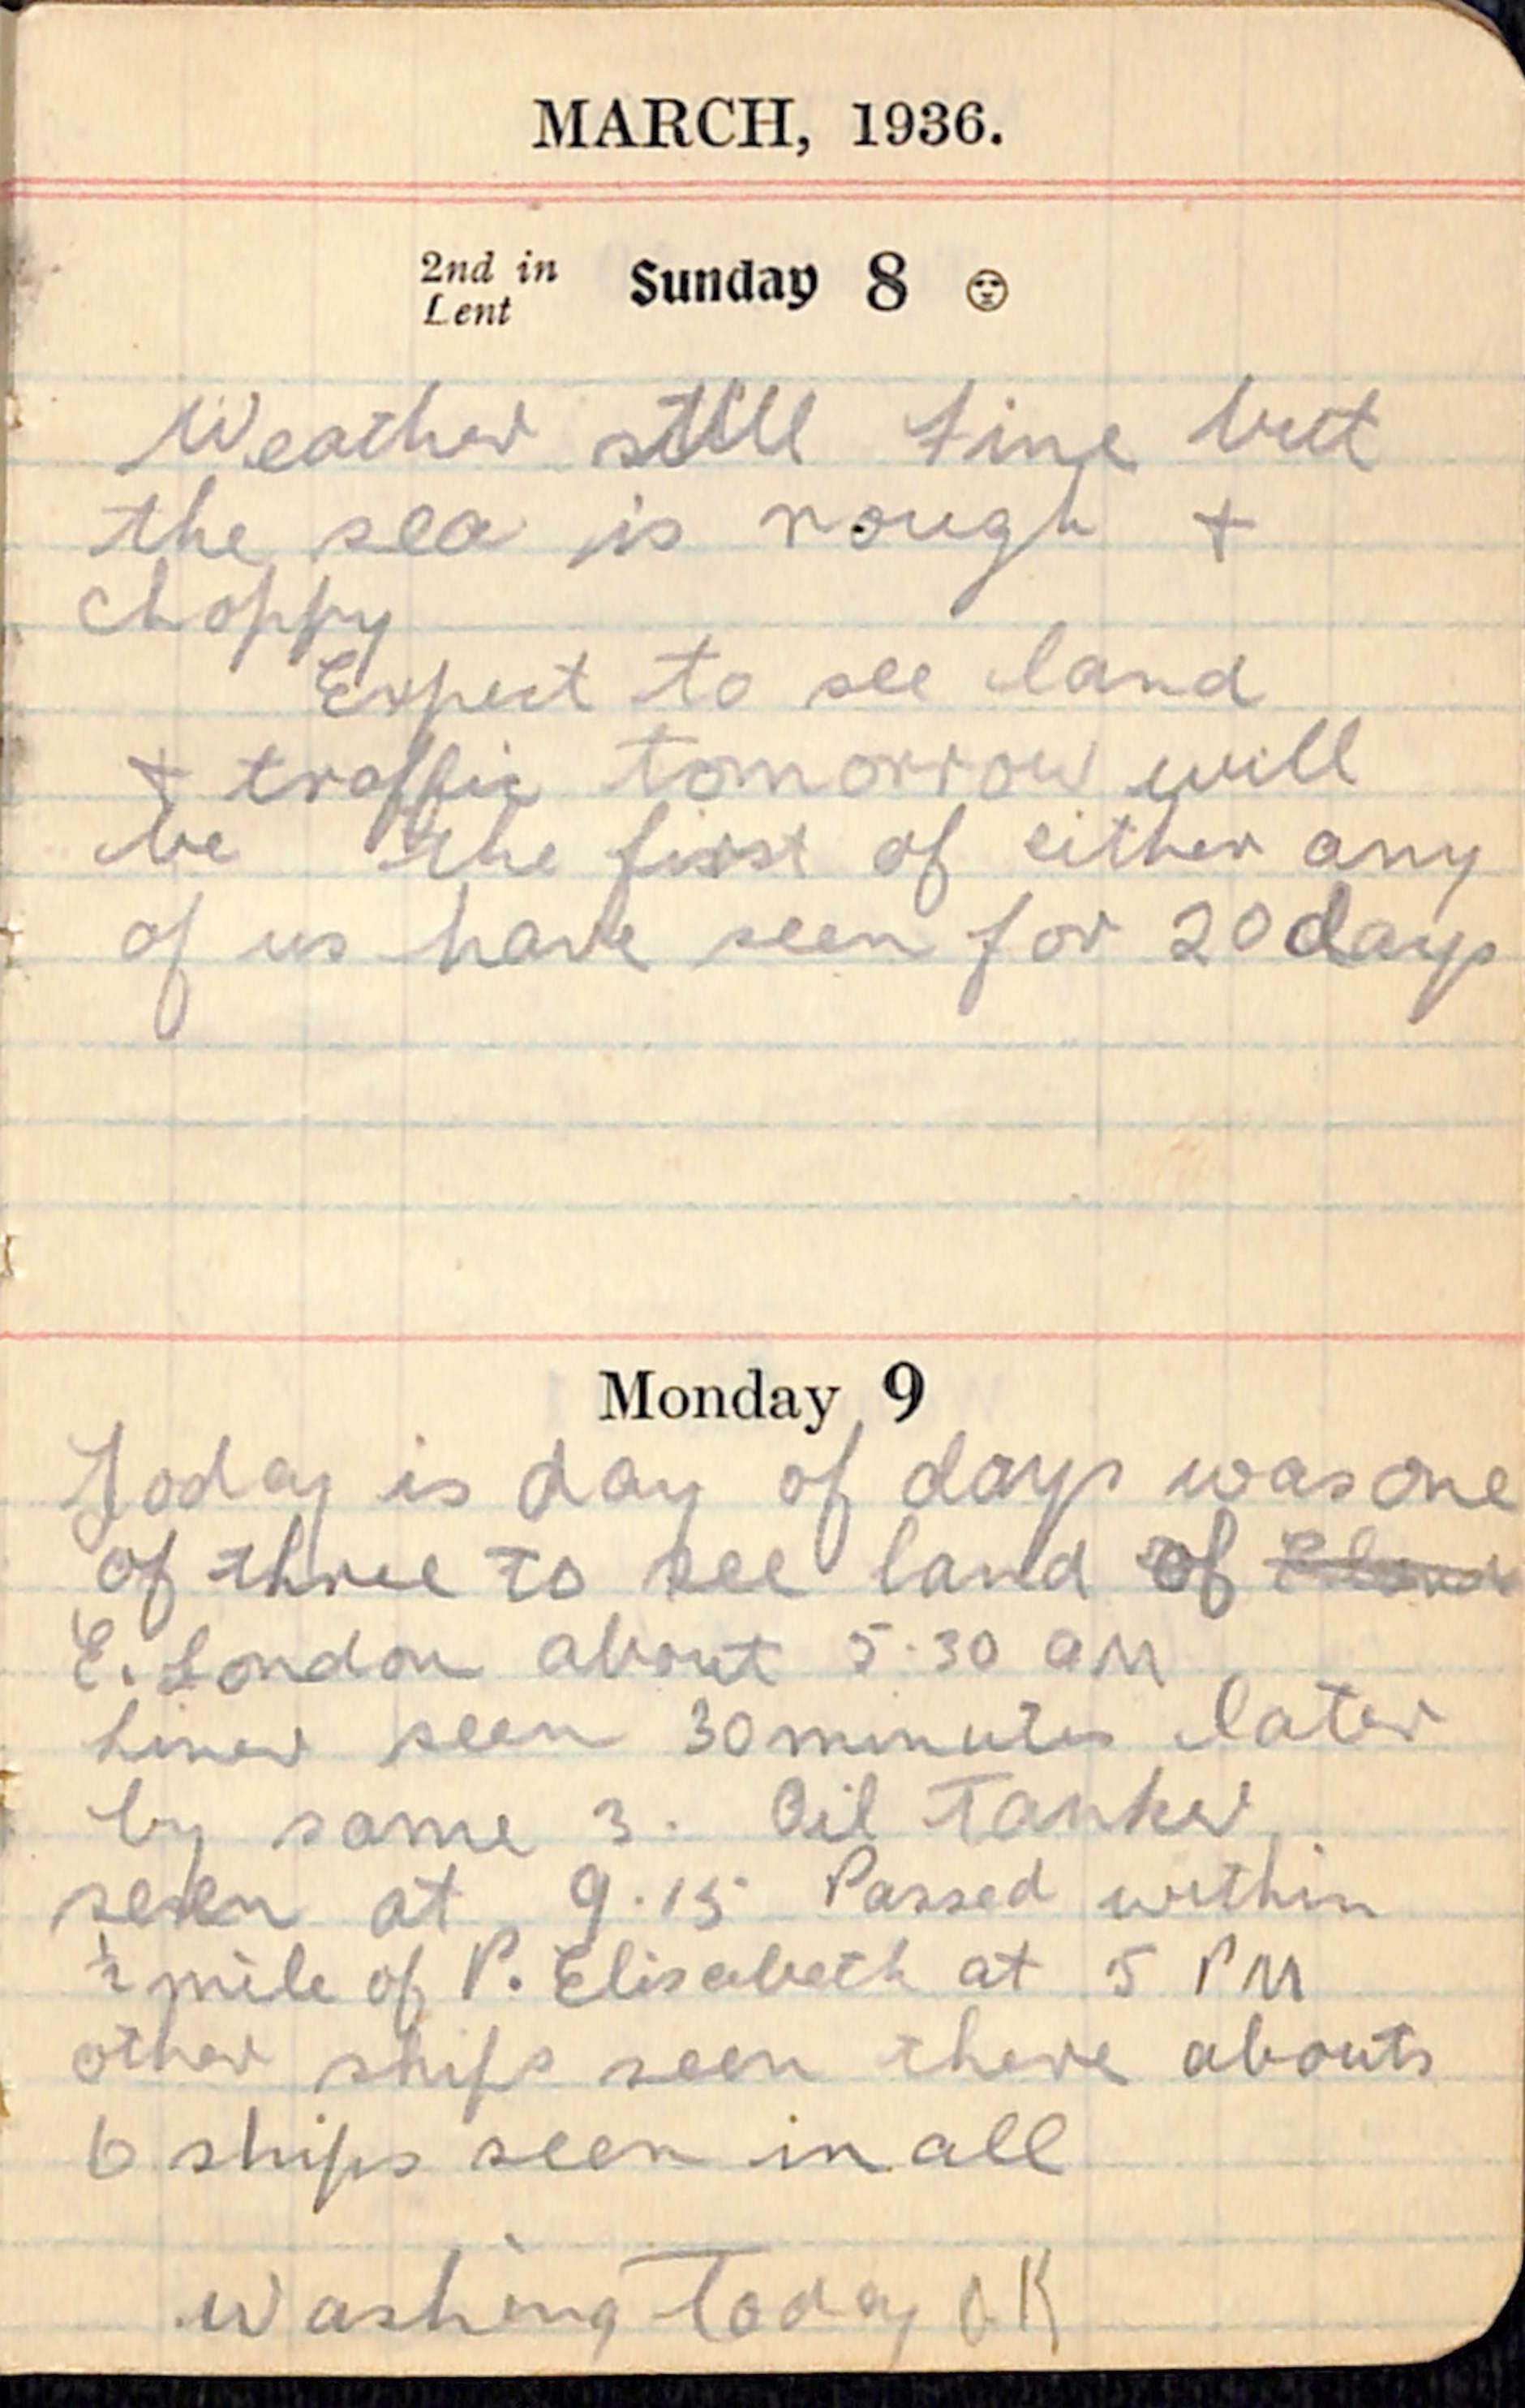 MARCH, 1936.
2nd in Lent Sunday 8
Weather still fine but
the sea is rough +
choppy
Expect to see land
+ traffic tomorrow will
be the first of either any
of us have seen for 20 days
Monday 9
Today is day of days was one
of three to see land of
E. London about 5.30 am
Liner seen 30 minutes later
by same 3. Oil Tanker
seen at 9.15 Passed within
½ mile of P. Elisabeth at 5 PM
other ships seen there abouts
6 ships seen in all
Washing Today OK